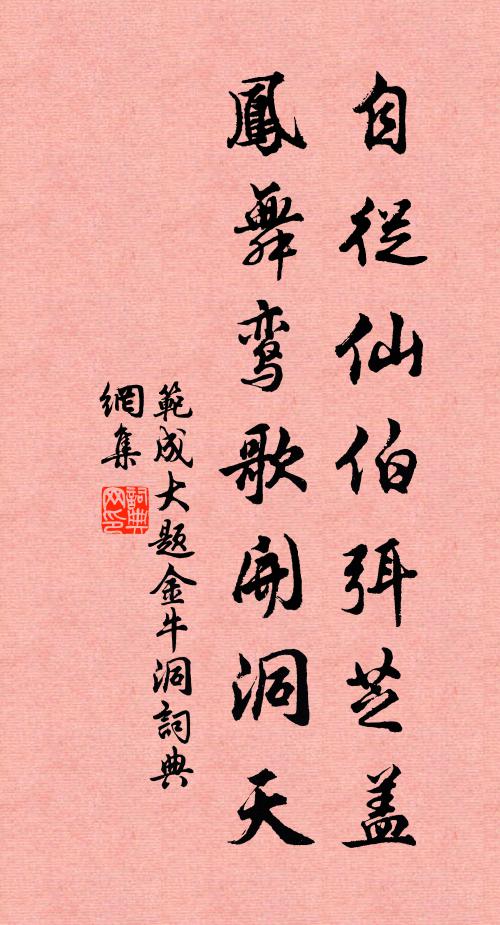 自從仙伯弭芝盖
鳳舞鸾歌開洞天
範成大题金牛洞詞典
網集
詞典
网印